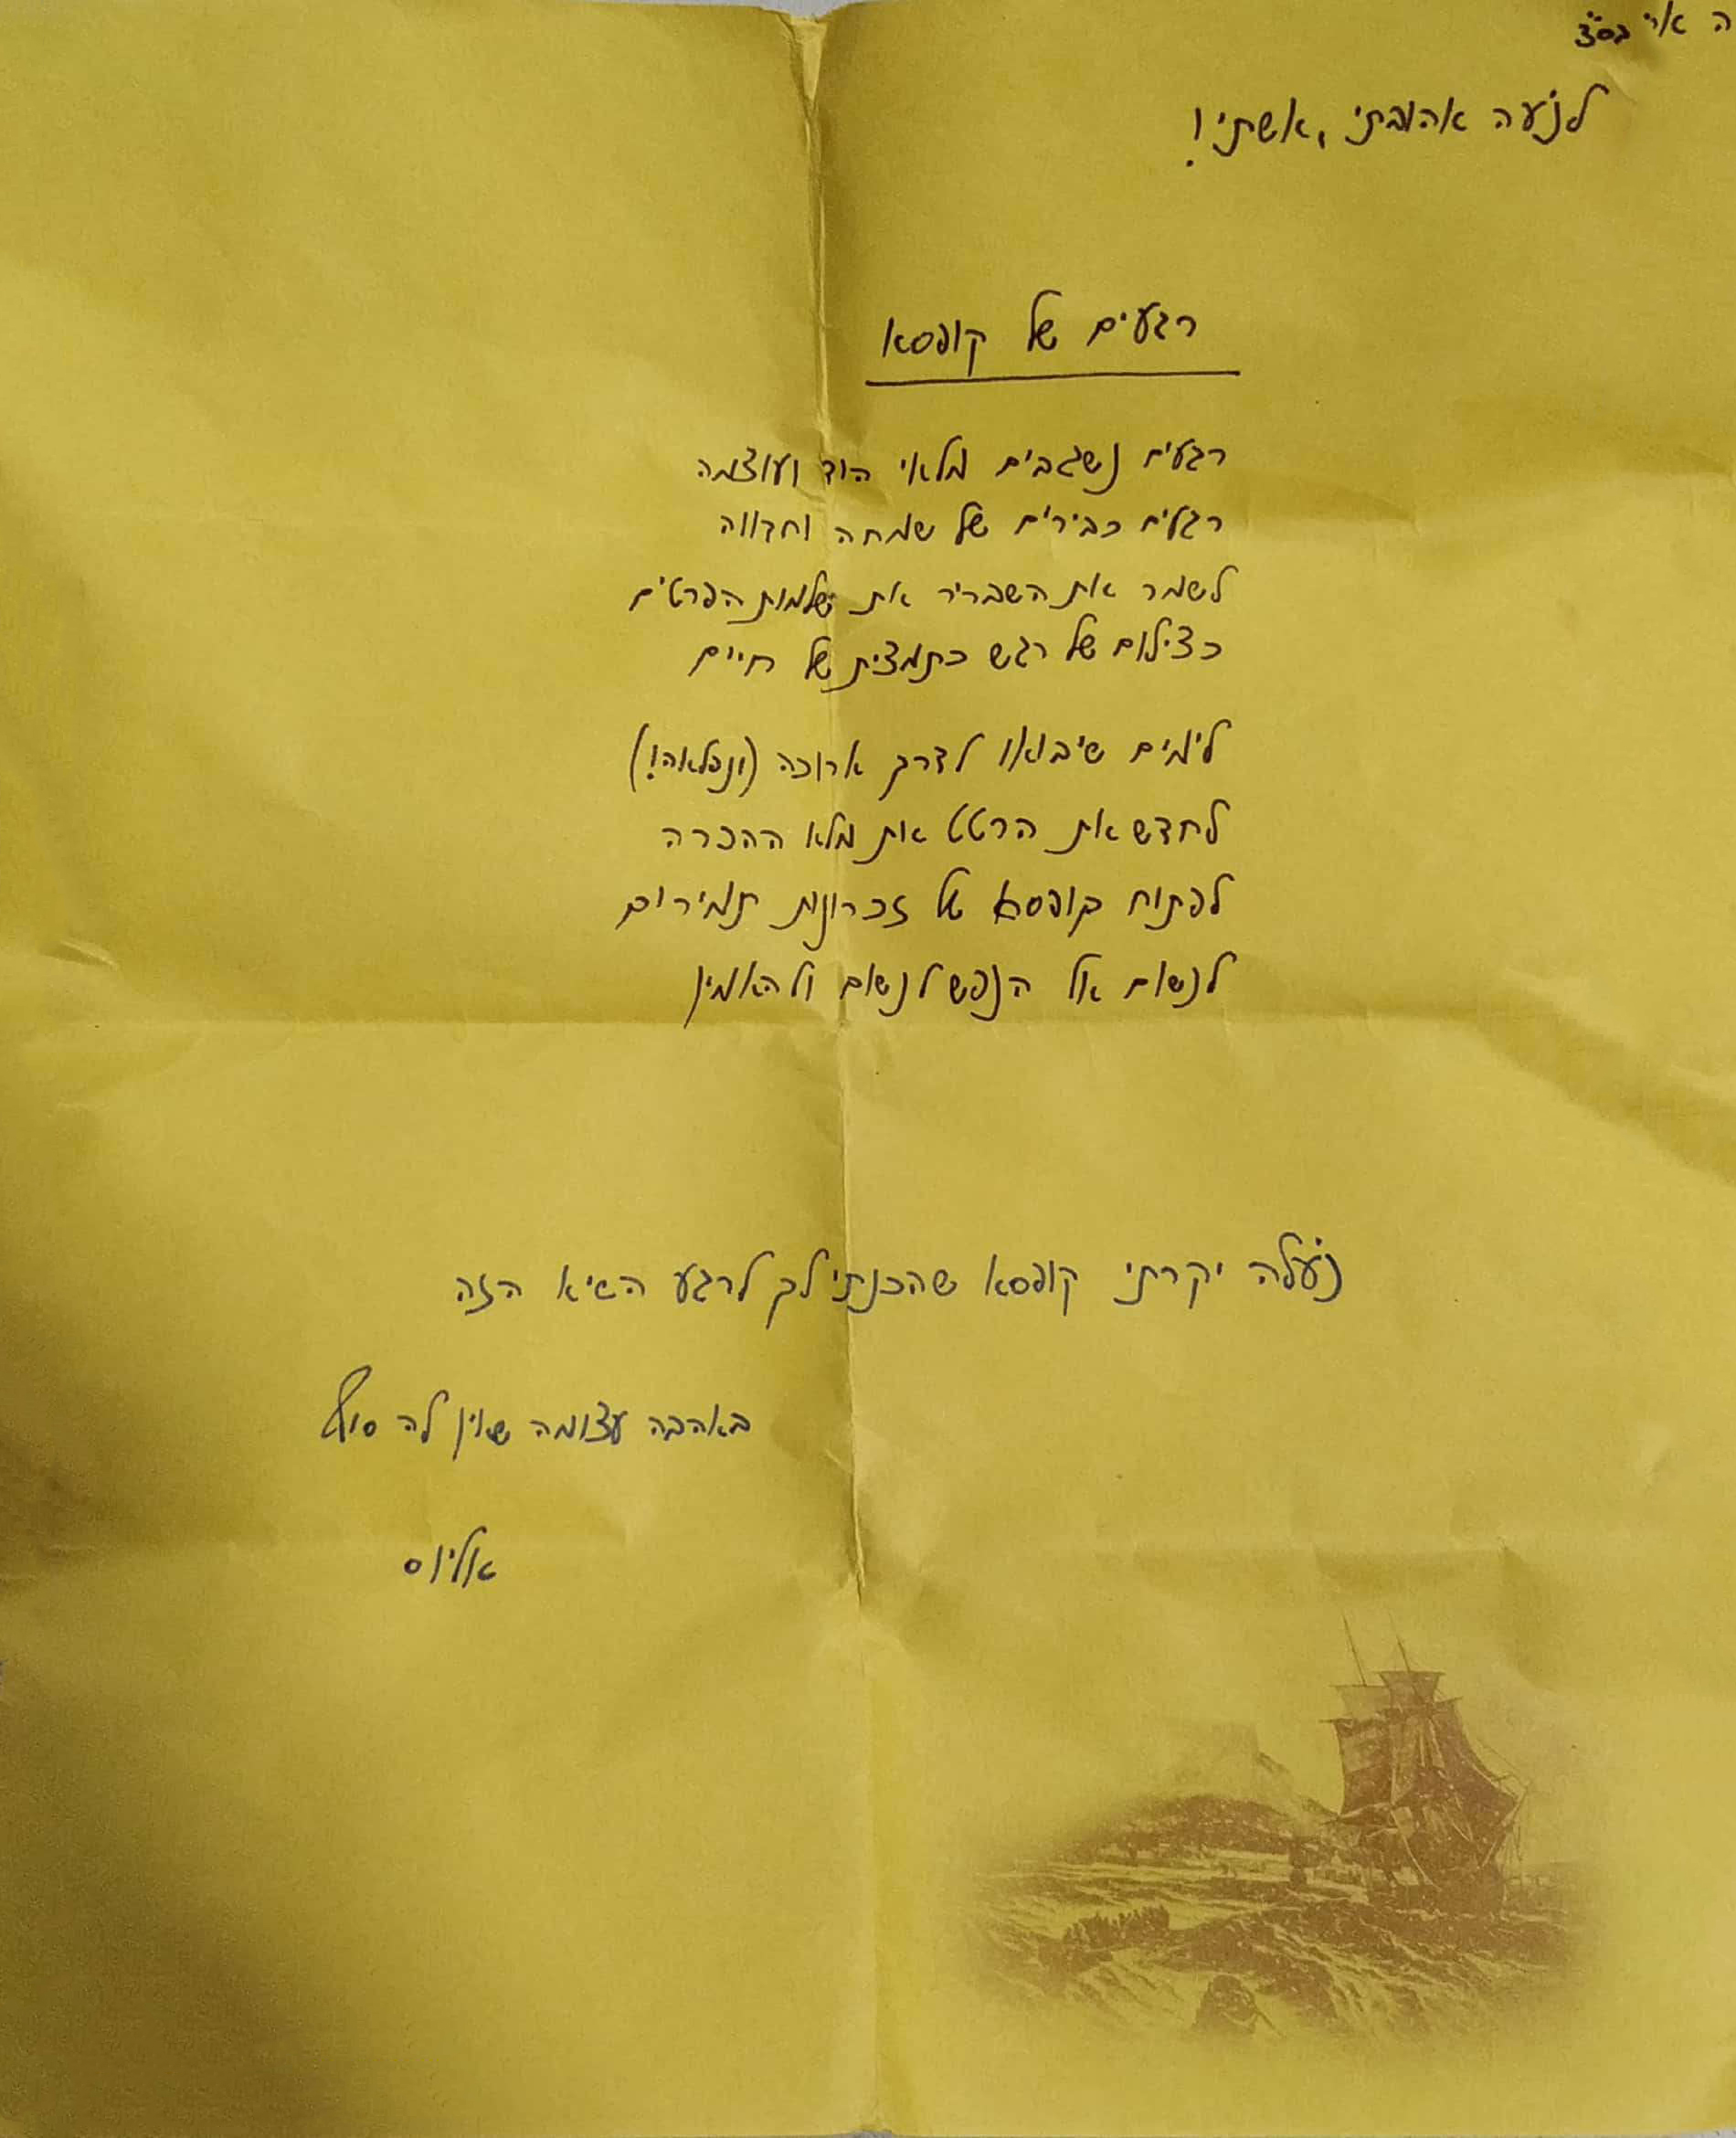 לנעה אהובתי, אשתי!
רגעים של קופסא
רגעים נשגבים מלאי הוד ועוצמה
רגעים כבירים של שמחה וחדווה
לשמר את השבריר את שלמות הפרטים
כצילום של רגש כתמצית של חיים
לימים שיבואו לדרך ארוכה (ונפלאה!)
לחדש את הרטט את מלא ההכרה
לפתוח קופסא של זכרונות תמירים
לנשום אל הנפש לנשום ולהאמין
נעלה יקרתי קופסא שהכנתי לך לרגע השיא הזה
באהבה עצומה שאין לה סוף